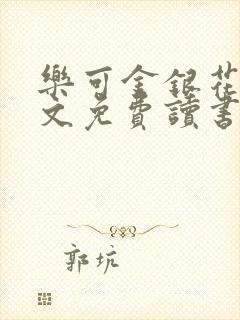 樂可金銀花
文免費讀書
郭坑